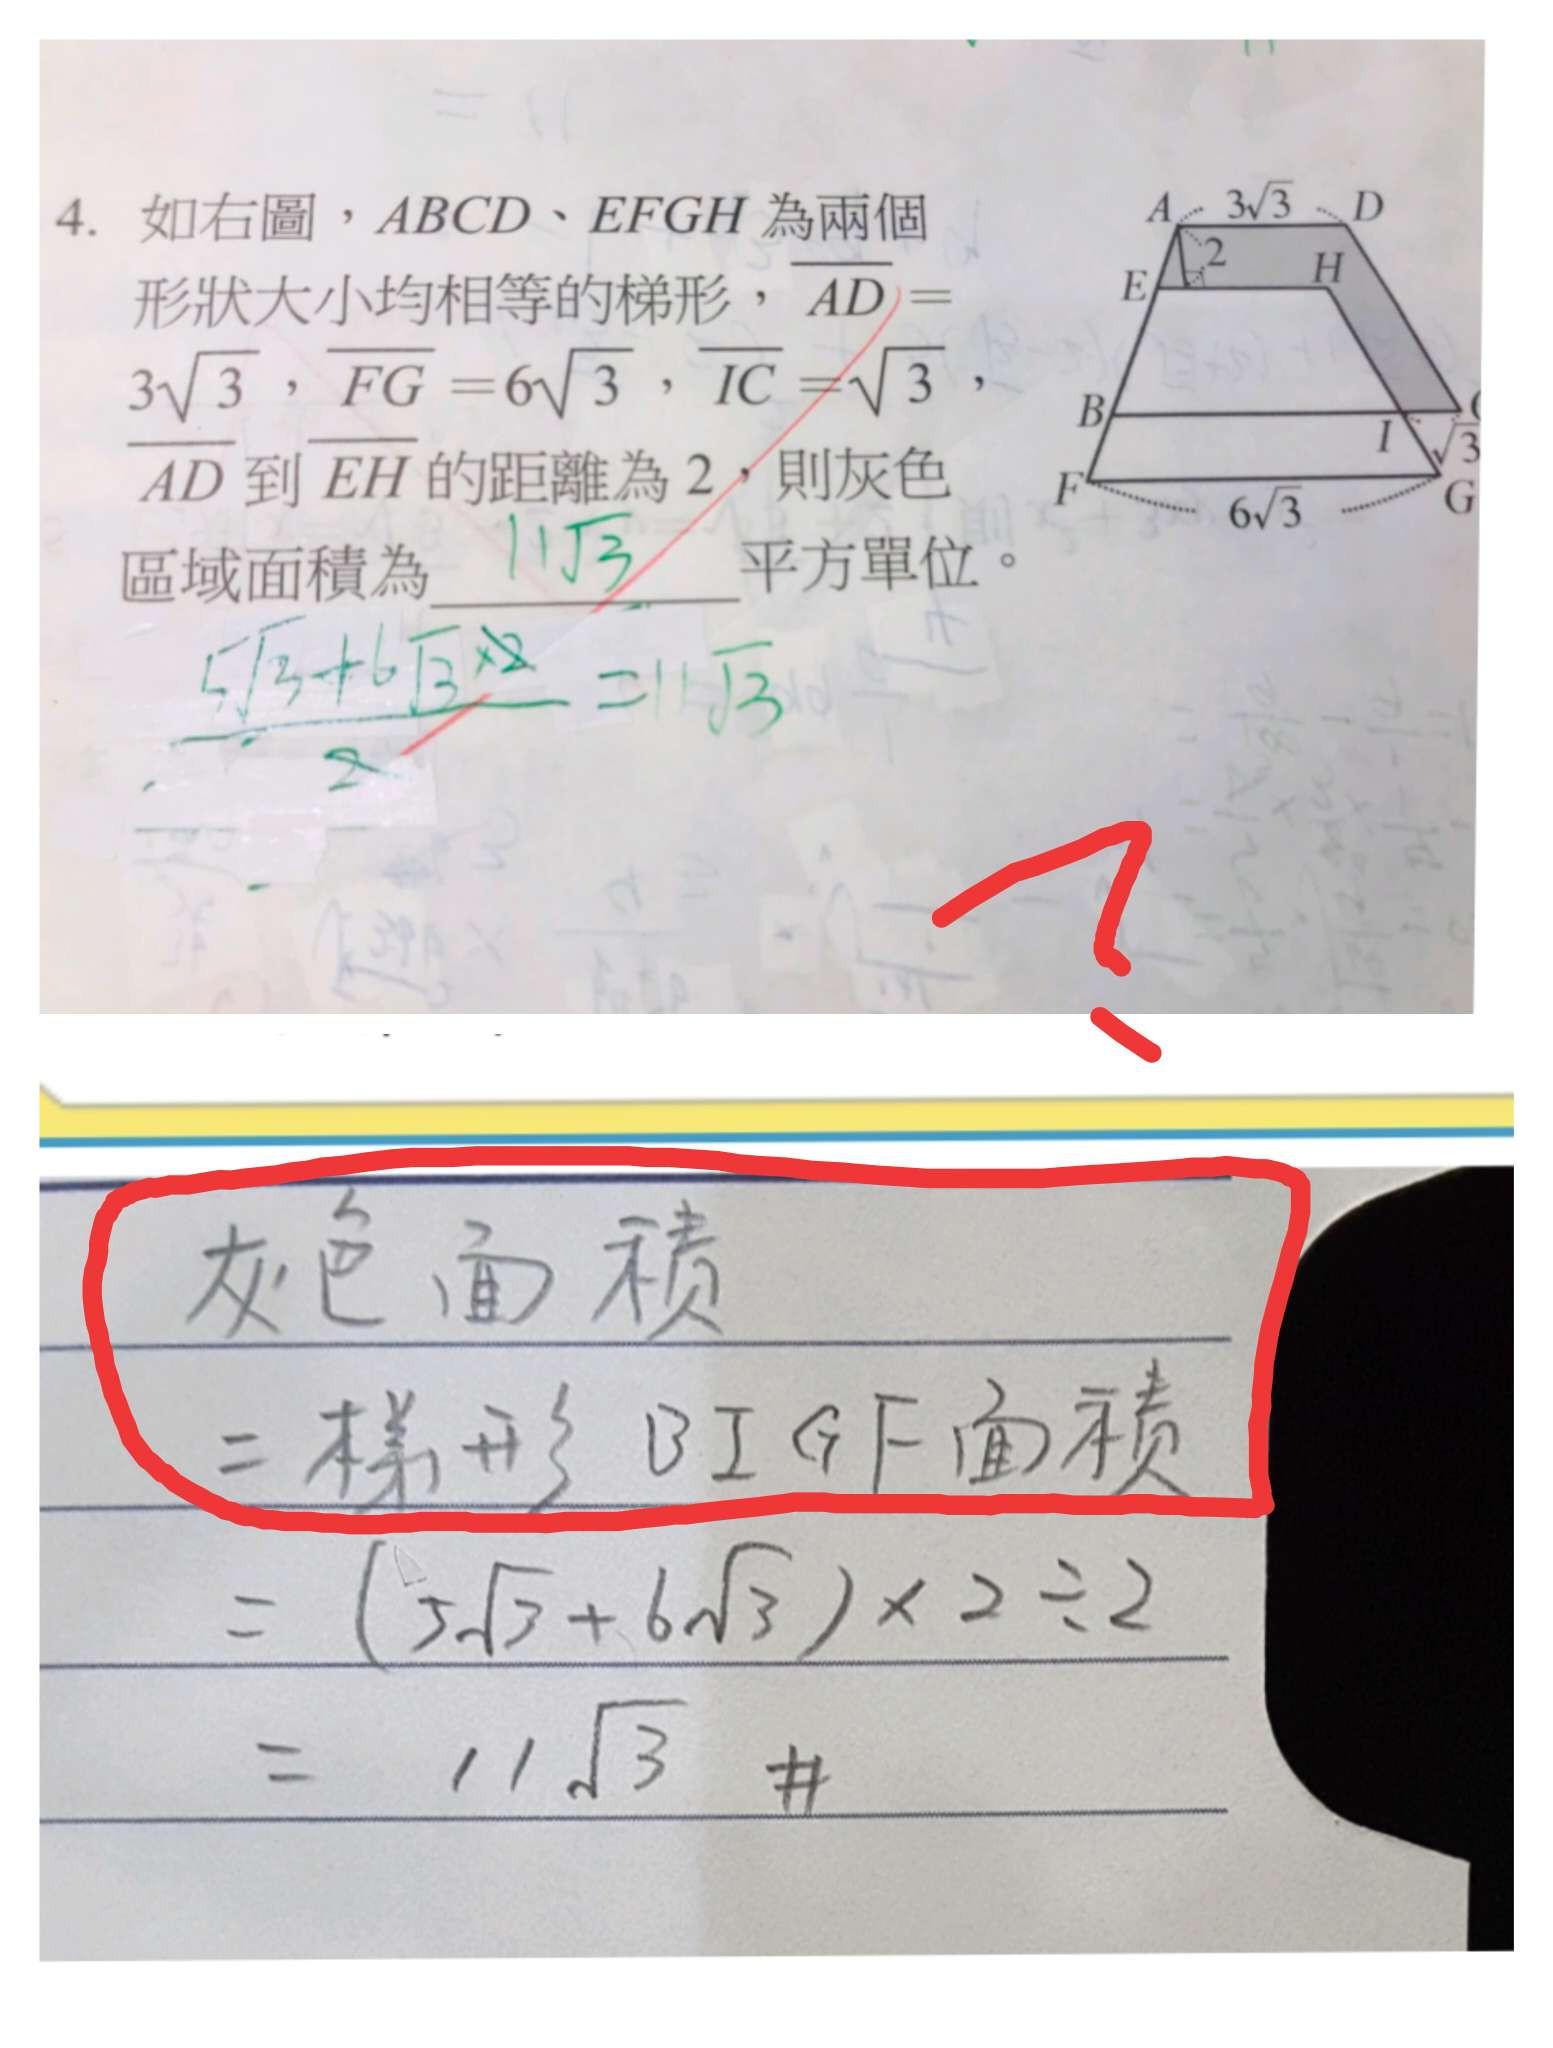 4. 如右圖，ABCD、EFGH 為兩個
形狀大小均相等的梯形，AD＝
3√3，FG＝6√3，IC＝√3，
AD 到 EH 的距離為 2，則灰色
區域面積為 11√3 平方單位。
5√3+6√3×2
2
=11√3
A 3√3 D
2
H
E
B
I
√3
F
6√3
G
?
灰色面積
=梯形BIGF面積
=(5√3+6√3)×2÷2
= 11√3 #